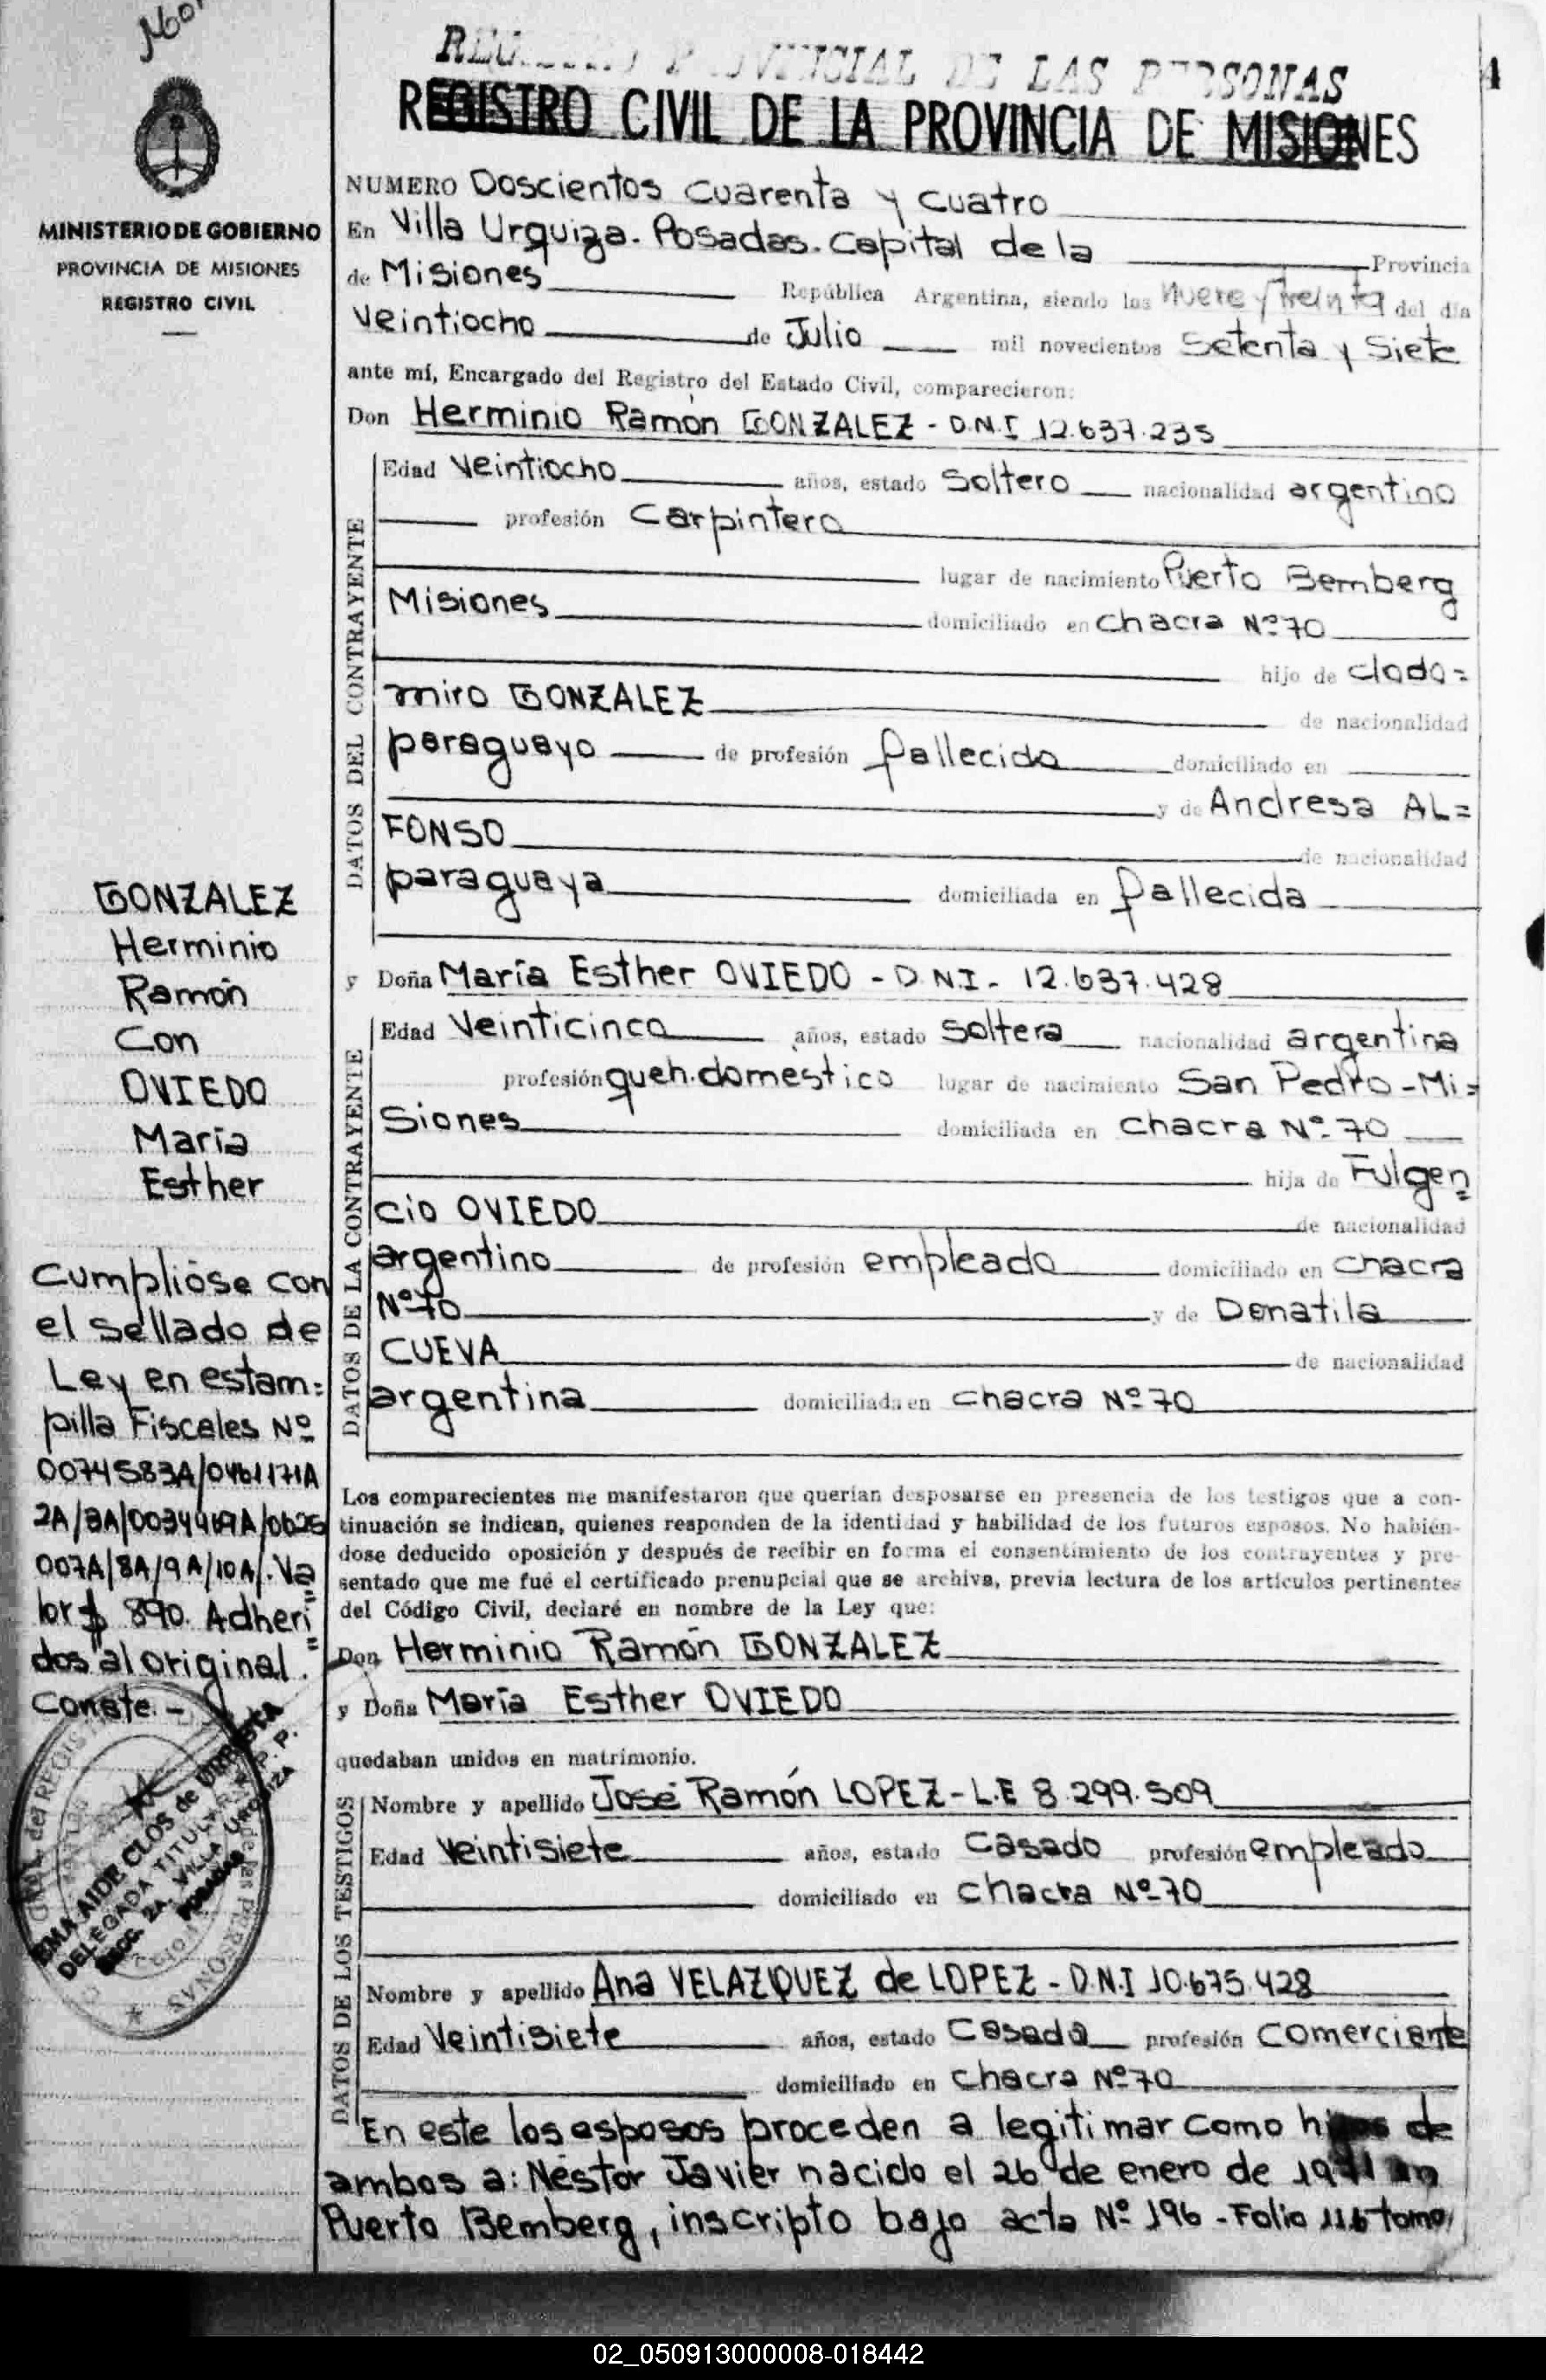 REGISTRO PROVINCIAL DE LAS PERSONAS
REGISTRO CIVIL DE LA PROVINCIA DE MISIONES
MINISTERIO DE GOBIERNO
PROVINCIA DE MISIONES
REGISTRO CIVIL
NUMERO Doscientos cuarenta y cuatro
En Villa Urquiza. Posadas. Capital de la Provincia
de Misiones República Argentina, siendo las Nueve y Treinta del día
Veintiocho de Julio mil novecientos Setenta y Siete
ante mí, Encargado del Registro del Estado Civil, comparecieron:
Don Herminio Ramón GONZALEZ - D.N.I 12.637.235
DATOS DEL CONTRAYENTE
Edad Veintiocho años, estado Soltero nacionalidad argentino
profesión Carpintero
lugar de nacimiento Puerto Bemberg
Misiones domiciliado en Chacra Nº 70
hijo de Clodo=
miro GONZALEZ de nacionalidad
paraguayo de profesión fallecido domiciliado en
y de Andresa AL=
FONSO de nacionalidad
paraguaya domiciliada en fallecida
y Doña María Esther OVIEDO - D.N.I. - 12.637.428
DATOS DE LA CONTRAYENTE
Edad Veinticinco años, estado Soltera nacionalidad argentina
profesión queh. domestico lugar de nacimiento San Pedro - Mi=
siones domiciliada en Chacra Nº 70
hija de Fulgen=
cio OVIEDO de nacionalidad
argentino de profesión empleado domiciliado en Chacra
Nº 70 y de Donatila
CUEVA de nacionalidad
argentina domiciliada en Chacra Nº 70
Los comparecientes me manifestaron que querían desposarse en presencia de los testigos que a con-
tinuación se indican, quienes responden de la identidad y habilidad de los futuros esposos. No habién-
dose deducido oposición y después de recibir en forma el consentimiento de los contrayentes y pre-
sentado que me fué el certificado prenupcial que se archiva, previa lectura de los artículos pertinentes
del Código Civil, declaré en nombre de la Ley que:
Don Herminio Ramón GONZALEZ
y Doña María Esther OVIEDO
quedaban unidos en matrimonio.
DATOS DE LOS TESTIGOS
Nombre y apellido José Ramón LOPEZ - L.E 8.299.509
Edad Veintisiete años, estado Casado profesión empleado
domiciliado en Chacra Nº 70
Nombre y apellido Ana VELAZQUEZ de LOPEZ - D.N.I 10.675.428
Edad Veintisiete años, estado Casada profesión Comerciante
domiciliado en Chacra Nº 70
En este los esposos proceden a legitimar como hijos de
ambos a: Néstor Javier nacido el 26 de enero de 1971 en
Puerto Bemberg, inscripto bajo acta Nº 196 - Folio 116 tomo
GONZALEZ
Herminio
Ramón
Con
OVIEDO
María
Esther
Cumplióse con
el sellado de
Ley en estam=
pilla Fiscales Nº
0074583A/0461171A
2A/3A/0034469A/0625
007A/8A/9A/10A/. Va=
lor $ 890. Adheri=
dos al original.
Conste. -
EMA AIDE CLOS de URRUTIA
DELEGADA TITULAR R. P. P.
SECC. 2A. VILLA URQUIZA
POSADAS
02_050913000008-018442